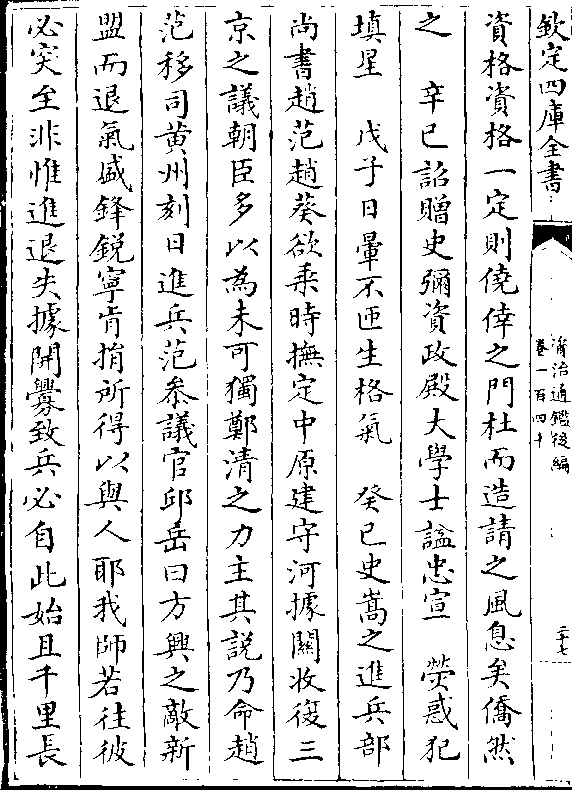 欽定四庫全書
資治通鑑後編
卷一百四十
二十七
資格資格一定則僥倖之門杜而造請之風息矣僑然
之　辛已詔贈史彌資政殿大學士諡忠宣　熒惑犯
填星　戊子日暈不匝生格氣　癸已史嵩之進兵部
尚書趙范趙葵欲乘時撫定中原建守河據關收復三
京之議朝臣多以為未可獨鄭清之力主其說乃命趙
范移司黄州刻日進兵范參議官邱岳曰方興之敵新
盟而退氣盛鋒銳寧肯捐所得以與人耶我師若往彼
必突至非惟進退失據開釁致兵必自此始且千里長